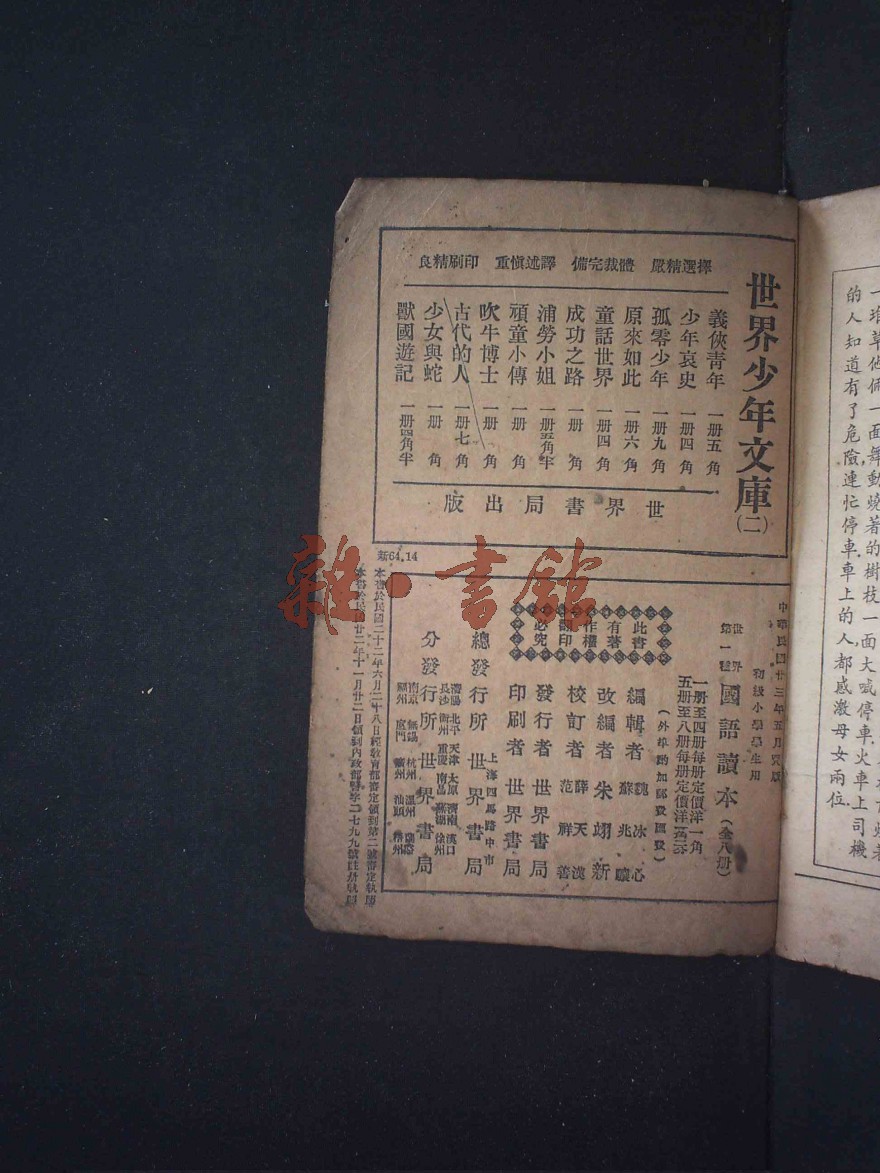 的人知道有了危險連忙停車車上的人都感激母女兩位
世界少年文庫(二)
擇選精嚴 體裁完備 譯述慎重 印刷精良
義俠青年 一册五角
少年哀史 一册四角
孤零少年 一册九角
原來如此 一册六角
童話世界 一册四角
成功之路 一册 角
浦勞小姐 一册五角半
頑童小傳 一册 角
吹牛博士 一册 角
古代的人 一册七角
少女與蛇 一册 角
獸國遊記 一册四角半
世界書局出版
中華民國廿三年五月 版
初級小學學生用
世界第一種 國語讀本(全八册)
一册至四册每册定價洋一角
五册至八册每册定價洋
(外埠酌加郵費匯費)
此書有著作權翻印必究
編輯者 魏冰心 蘇兆驤
改編者 朱翊新
校訂者 薛天漢 范祥善
發行者 世界書局
印刷者 世界書局
上海四馬路中市
總發行所 世界書局
瀋陽 北平 天津 太原 濟南 漢口
長沙 衡州 重慶 南昌 蕪湖 徐州
分發行所 世界書局
南京 無錫 杭州 溫州
福州 廈門 廣州 汕頭
新64,14
本書於民國二十二年六月二十八日經教育部審定領到第二號審定執照
本書於民國廿二年十一月廿二日領到內政部警字二七九九號註册執照
雜·書館